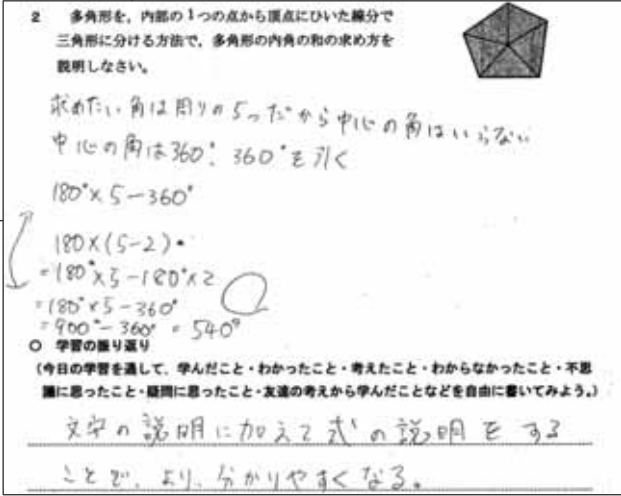 2 多角形を、内部の1つの点から頂点にひいた線分で
三角形に分ける方法で、多角形の内角の和の求め方を
説明しなさい。
求めたい角は周りの5つだから中心の角はいらない
中心の角は360°. 360°を引く
180°×5-360°
180×(5-2)
=180°×5-180°×2
=180°×5-360°
=900°-360°=540°
○ 学習の振り返り
(今日の学習を通して、学んだこと・わかったこと・考えたこと・わからなかったこと・不思
議に思ったこと・疑問に思ったこと・友達の考えから学んだことなどを自由に書いてみよう。)
文字の説明に加えて式の説明をする
ことで、より、分かりやすくなる。